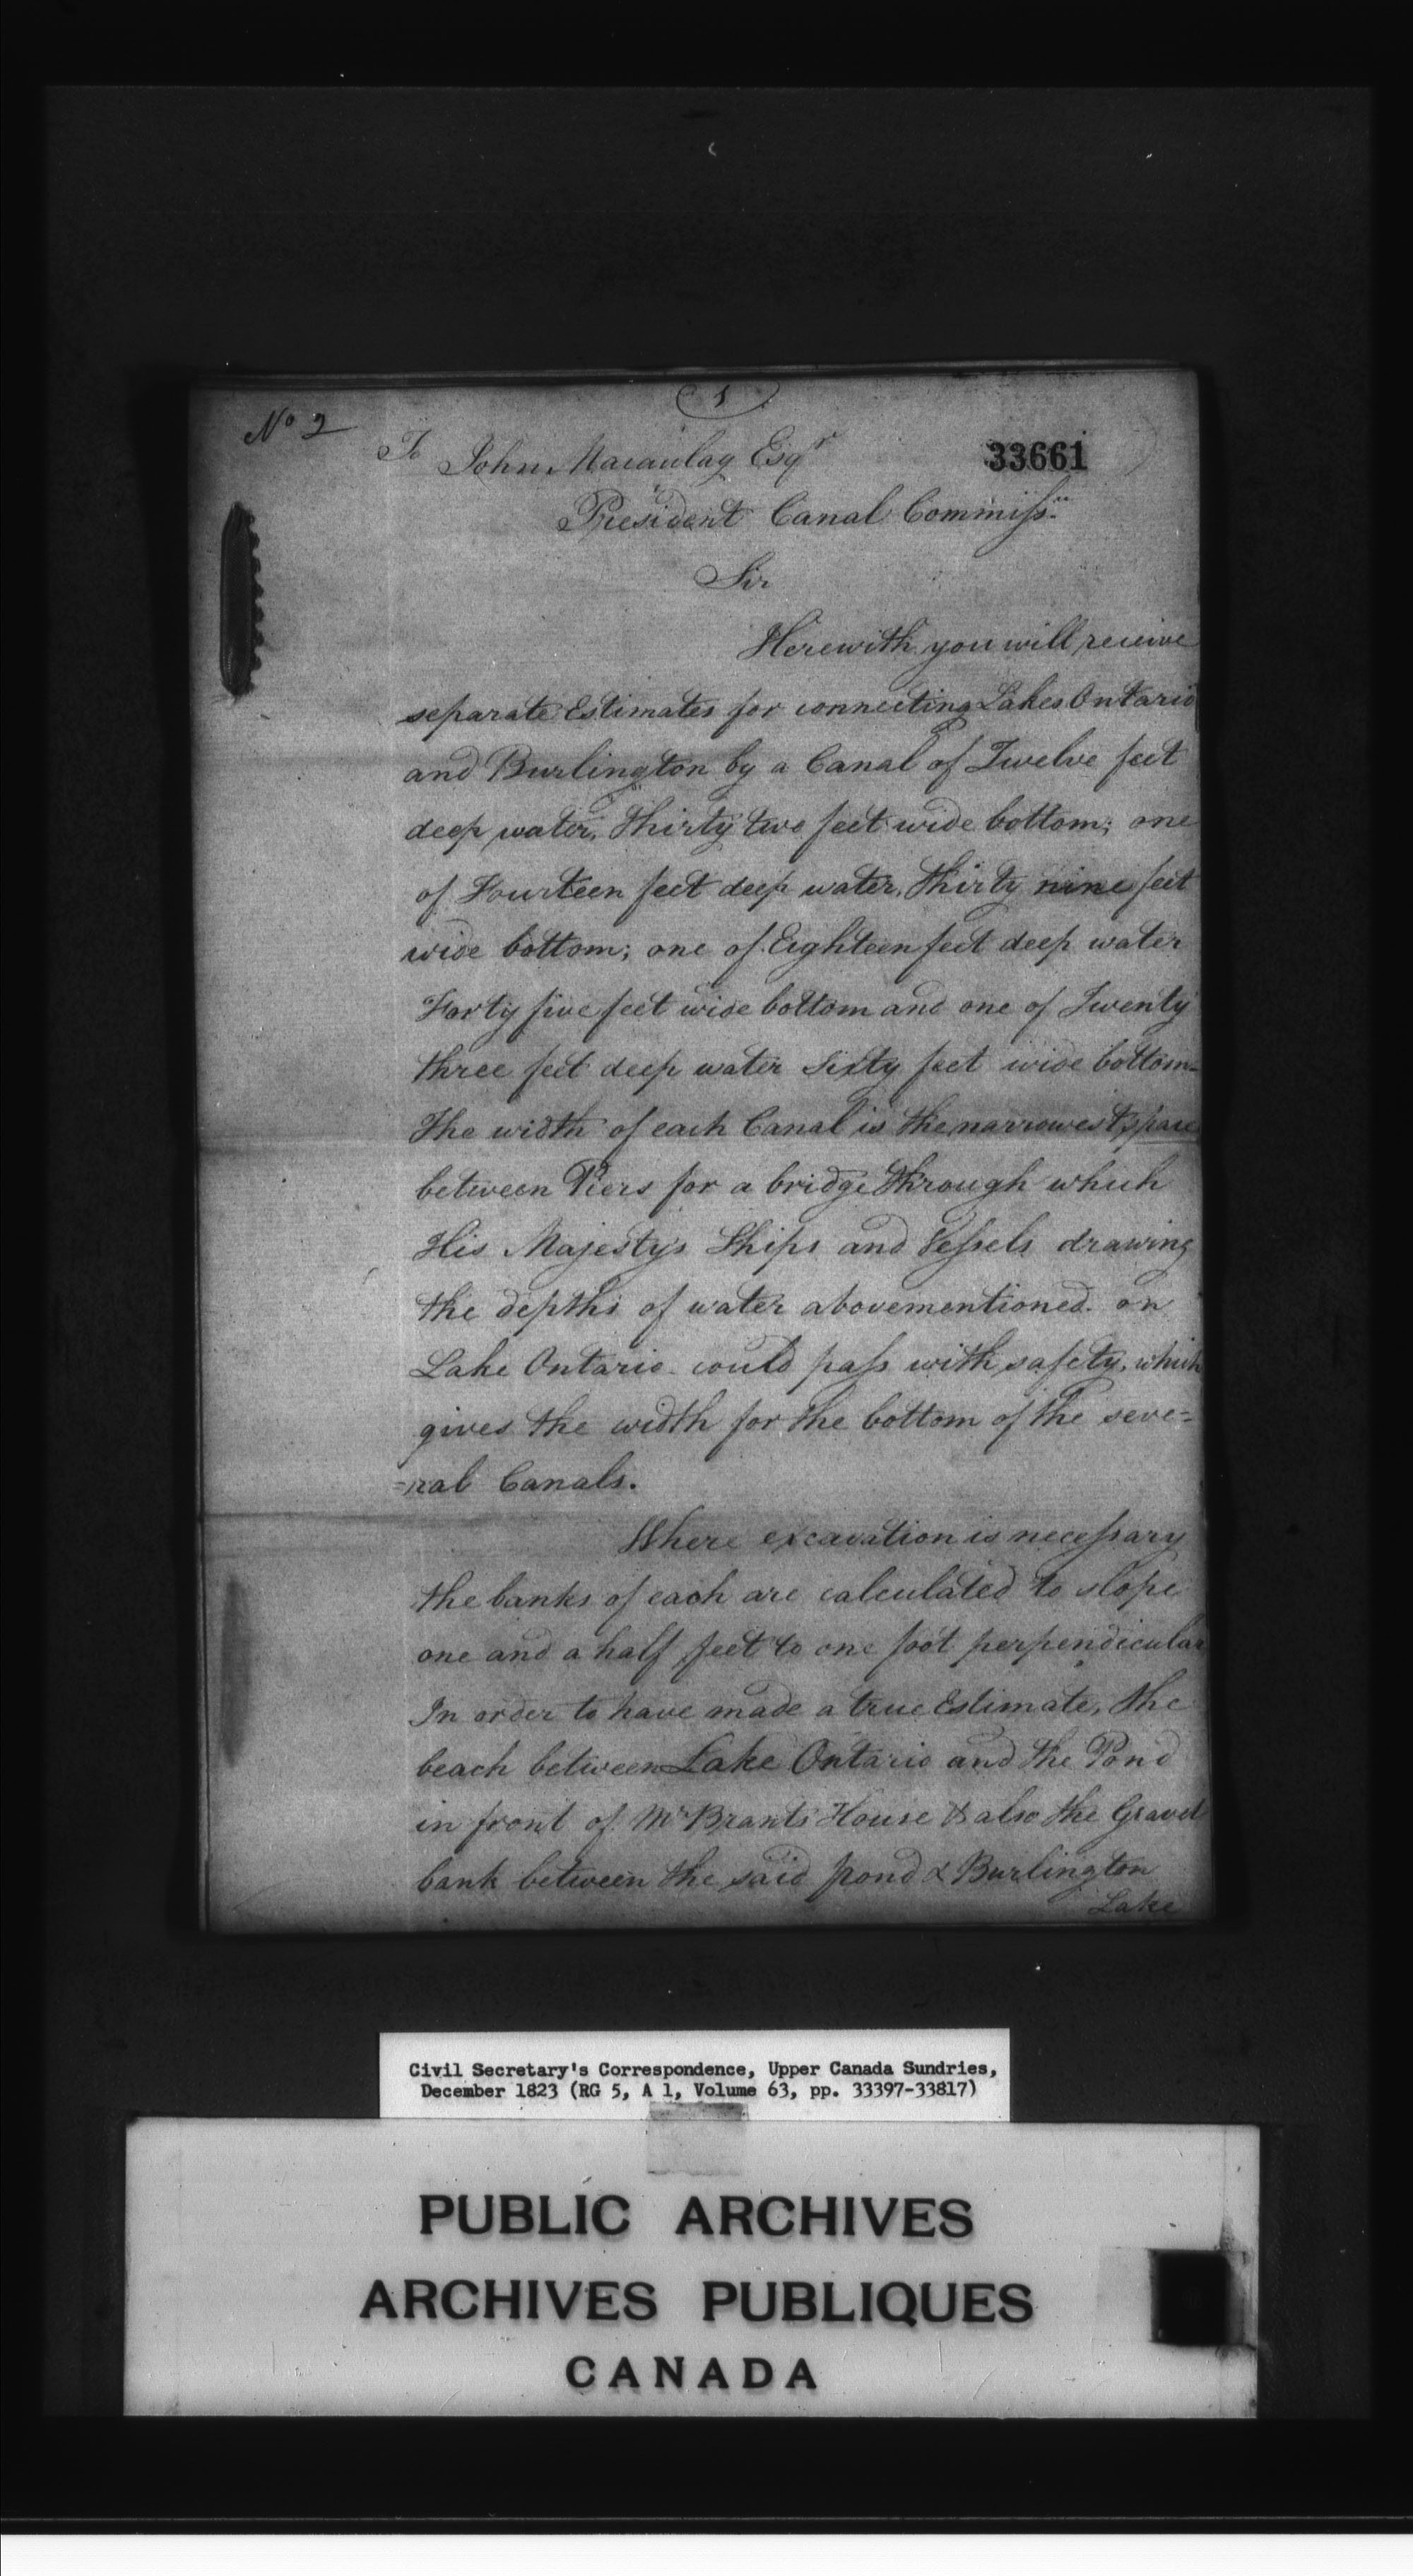 1
No 2
To John Macaulay Esqr
33661
President Canal Commissn
Sir
Herewith you will receive
separate Estimates for connecting Lakes Ontario
and Burlington by a Canal of Twelve feet
deep water, thirty two feet wide bottom; one
of Fourteen feet deep water, thirty nine feet
wide bottom; one of Eighteen feet deep water
Forty five feet wide bottom and one of Twenty
three feet deep water sixty feet wide bottom-
The width of each Canal is the narrowest space
between Piers for a bridge through which
His Majestys Ships and Vessels drawing
the depths of water abovementioned on
Lake Ontario could pass with safety, which
gives the width for the bottom of the seve=
=ral Canals.
Where excavation is necessary
the banks of each are calculated to slope
one and a half feet to one foot perpendicular
In order to have made a true Estimate, the
beach between Lake Ontario and the Pond
in front of Mr Brants House & also the Gravel
bank between the said pond & Burlington
Lake
Civil Secretary's Correspondence, Upper Canada Sundries,
December 1823 (RG 5, A 1, Volume 63, pp. 33397-33817)
PUBLIC ARCHIVES
ARCHIVES PUBLIQUES
CANADA